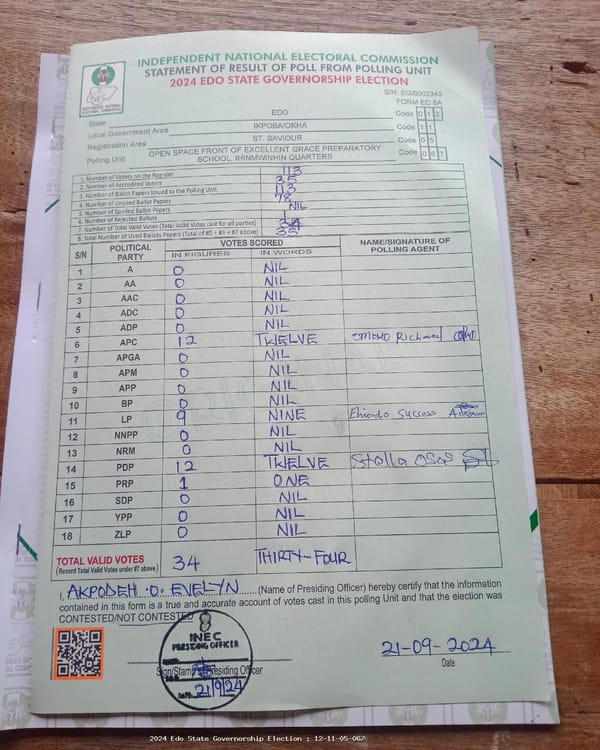 INDEPENDENT NATIONAL ELECTORAL COMMISSION
STATEMENT OF RESULT OF POLL FROM POLLING UNIT
2024 EDO STATE GOVERNORSHIP ELECTION
S/N: EG/0002343
FORM EC 8A
State EDO Code 0 1 2
Local Government Area IKPOBA/OKHA Code 1 1
Registration Area ST. SAVIOUR Code 0 5
Polling Unit OPEN SPACE FRONT OF EXCELLENT GRACE PREPARATORY SCHOOL, IHINMWINHIN QUARTERS Code 0 6 7
1. Number of Voters on the Register 113
2. Number of Accredited Voters 35
3. Number of Ballot Papers Issued to the Polling Unit 113
4. Number of Unused Ballot Papers 78
5. Number of Spoiled Ballot Papers NIL
6. Number of Rejected Ballots
7. Number of Total Valid Votes (Total Valid Votes cast for all parties) 34
8. Total Number of Used Ballots Papers (Total of #5 + #6 + #7 above) 35
S/N POLITICAL PARTY VOTES SCORED NAME/SIGNATURE OF POLLING AGENT
IN FIGURES IN WORDS
1 A 0 NIL
2 AA 0 NIL
3 AAC 0 NIL
4 ADC 0 NIL
5 ADP 0 NIL
6 APC 12 TWELVE Richard
7 APGA 0 NIL
8 APM 0 NIL
9 APP 0 NIL
10 BP 0 NIL
11 LP 9 NINE Success
12 NNPP 0 NIL
13 NRM 0 NIL
14 PDP 12 TWELVE Stella
15 PRP 1 ONE
16 SDP 0 NIL
17 YPP 0 NIL
18 ZLP 0 NIL
TOTAL VALID VOTES 34 THIRTY-FOUR
(Record Total Valid Votes under #7 above)
I, AKPODEH .O. EVELYN (Name of Presiding Officer) hereby certify that the information
contained in this form is a true and accurate account of votes cast in this polling Unit and that the election was
CONTESTED/NOT CONTESTED
INEC
PRESIDING OFFICER
Sign/Stamp Presiding Officer
DATE 21/9/24
21-09-2024
Date
2024 Edo State Governorship Election : 12-11-05-067